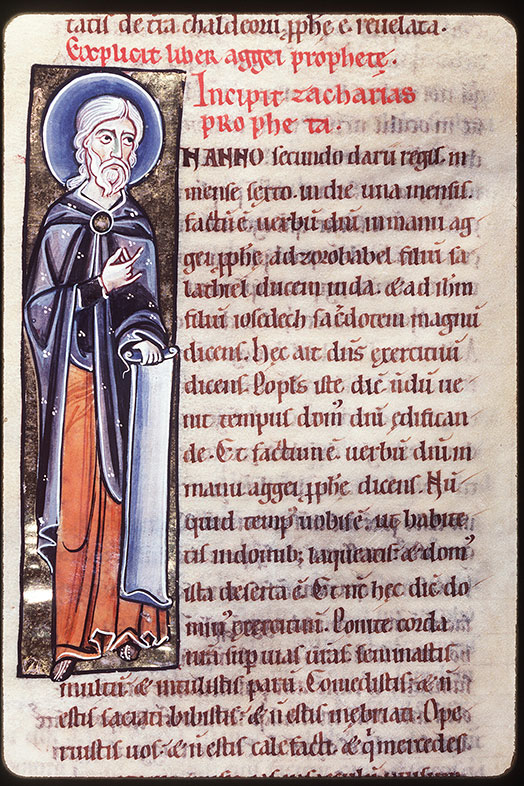 tatis de t̄ra chaldeoꝝ ꝓph̄e ē reuelata.
Explicit liber aggei prophetę.
Incipit zacharias
propheta.
N ANNO secundo darii regis. in
mense sexto. in die una mensis.
factū ē uerbū dn̄i in manu ag
gei ꝓph̄e. ad zorobabel filiū sa
lathiel ducem iuda. & ad ih̄m
filiū iosedech sac̄dotem magnū
dicens. Hec ait dn̄s exercituū
dicens. Popl̄s iste dic̄. n̄dū ue
nit tempus domꝰ dn̄i edifican
de. Et factum ē uerbū dn̄i in
manu aggei ꝓph̄e dicens. Nū
quid tempꝰ uobis ē. ut habite
tis in domib; laqueatis. & domꝰ
ista deserta ē. Et nc̄ hęc dic̄ do
minꝰ exercituū. Ponite corda
ur̄a sup uias ur̄as. seminastis
multū & intulistis parū. Comedistis. & n̄
estis saciati. bibistis. & n̄ estis inebriati. Ope
ruistis uos. & n̄ estis calefacti. & q̄ mercedes